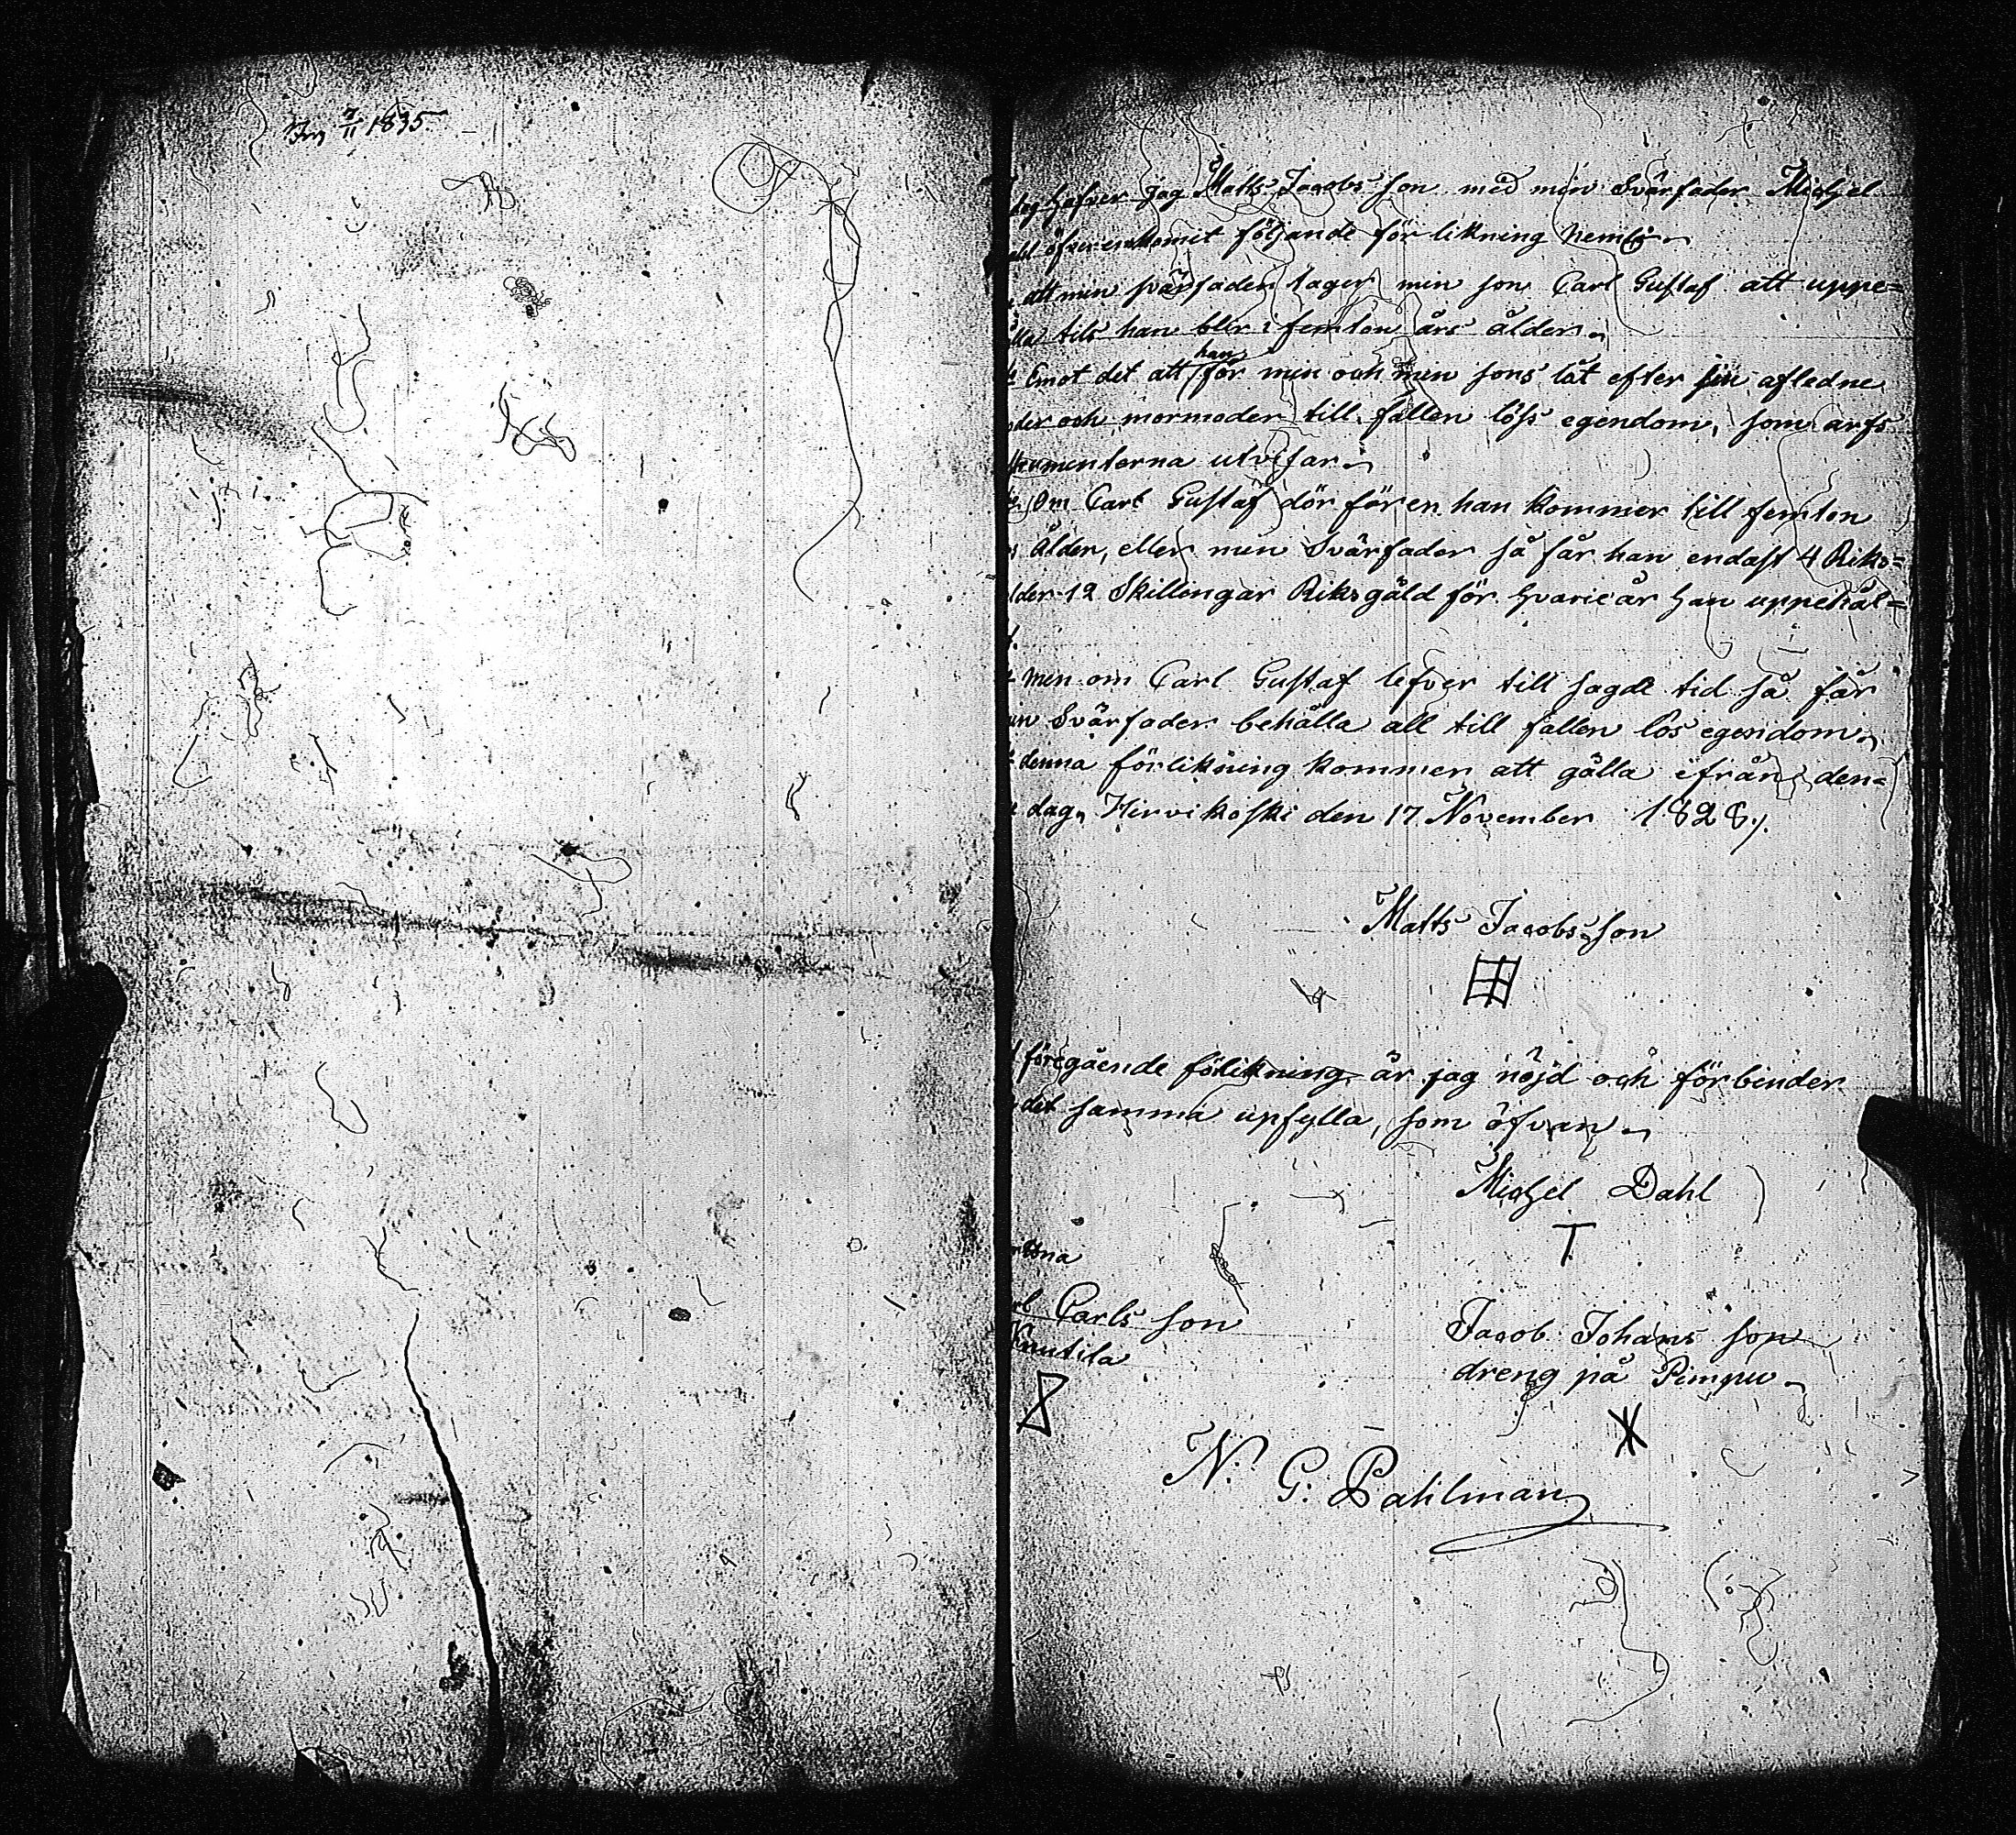 Ing 7/11 1835.
dag hafver jag Matts Jacobs son med min Svärfader Michel
öfverenskomit följande för likning neml:
att min svärfader tager min son Carl Gustaf att uppe=
lla tils han blir i femton års ålder
Emot det att han får min och min sons låt efter sin afledne
der och mormoder till fallen löss egendom, som arfs
kumenterna utvisar
Om Carl Gustaf dör för en han kommer till femton
Ålder, eller min Svärfader så får han endast 4 Riks=
lder 12 Skillingar Riksgäld för hvarie år han uppehål=
men om Carl Gustaf lefver till sagde tid så får
in Svärfader behålla all till fallen lös egendom
denna förlikning kommer att gälla ifrån den=
dag, Hirvikoski den 17 November 1828
Matts Jacobs son
föregående förlikning är jag nöjd och förbinder
det samma upfylla, som öfvan
Michel Dahl
ttna
Carls son
Knutila
Jacob Johans son
dreng på Pimpu
N: G: Pahlman